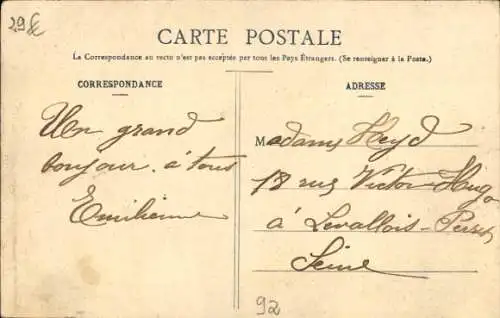 29 €
CARTE POSTALE
La Correspondance au recto n'est pas acceptée par tous les Pays Étrangers. (Se renseigner à la Poste.)
CORRESPONDANCE
Un grand
bonjour à tous
Emilienne
ADRESSE
Madame Heyd
18 rue Victor Hugo
à Levallois-Perret
Seine
92